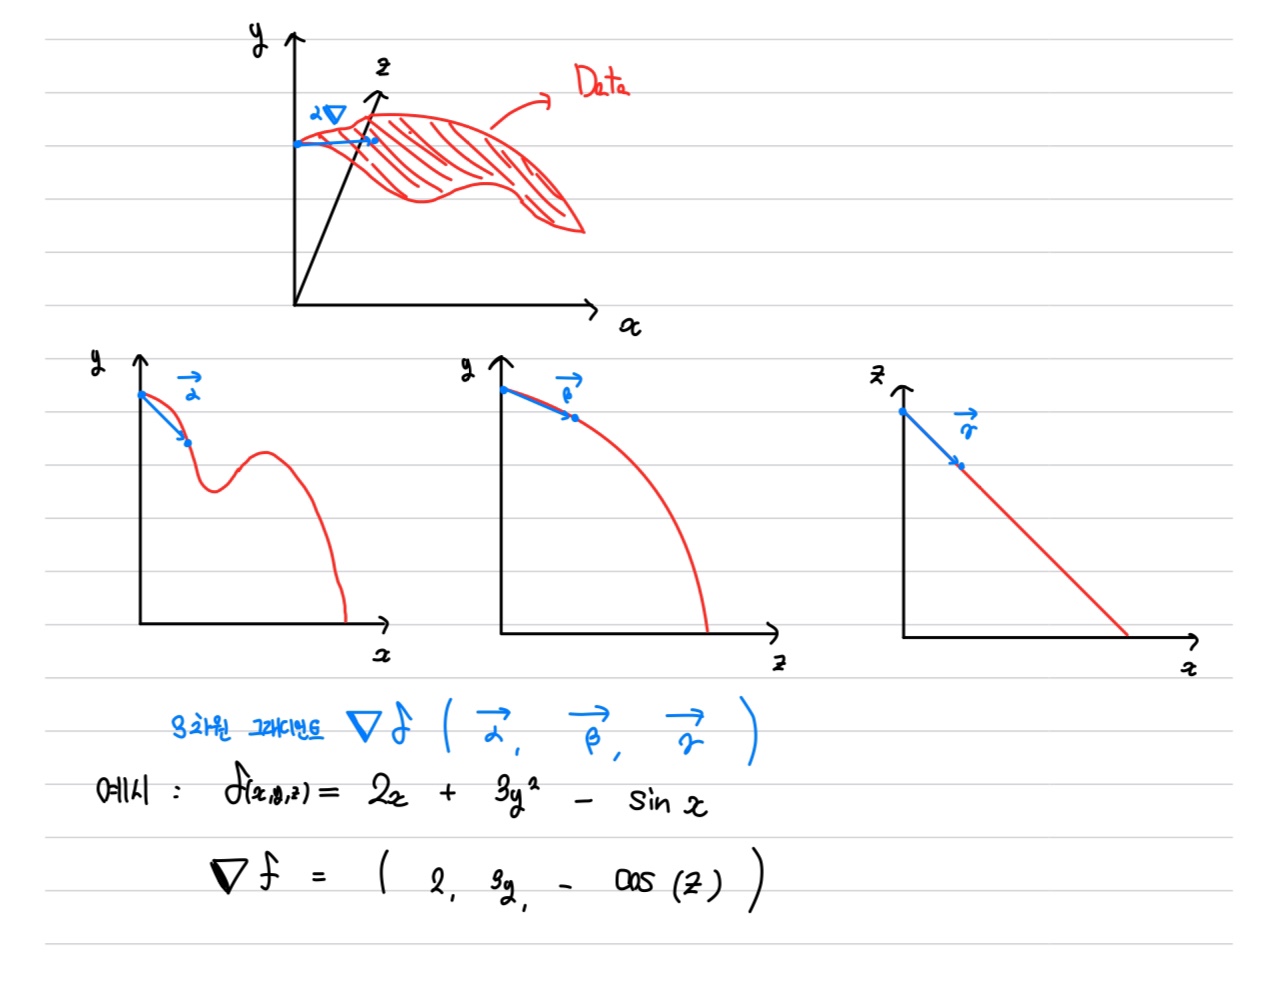 y
z
Data
α∇
x
y
α
x
y
β
z
z
γ
x
3차원 그래디언트 ∇f ( α, β, γ )
예시 : f(x,y,z) = 2x + 3y² - sin x
∇f = ( 2, 3y, - cos (z) )